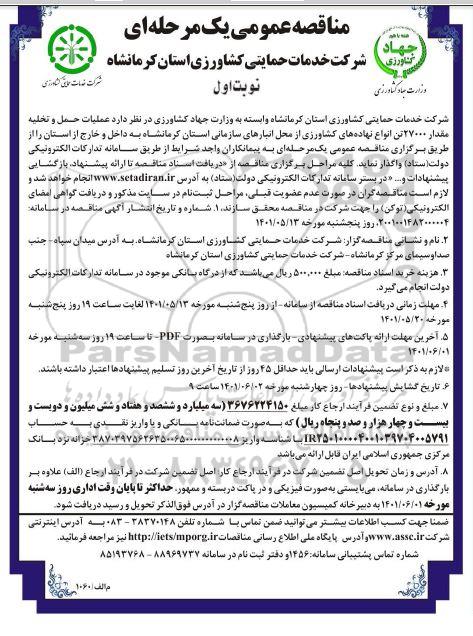 مناقصه عمومی یک مرحله‌ای
شرکت خدمات حمایتی کشاورزی استان کرمانشاه
نوبت اول
وزارت جهاد کشاورزی
شرکت خدمات حمایتی کشاورزی
شرکت خدمات حمایتی کشاورزی استان کرمانشاه وابسته به وزارت جهاد کشاورزی در نظر دارد عملیات حمل و تخلیه
مقدار ۲۷۰۰۰تن انواع نهاده‌های کشاورزی از محل انبارهای سازمانی استان کرمانشاه به داخل و خارج از استان را از
طریق برگزاری مناقصه عمومی یک‌مرحله‌ای به پیمانکاران واجد شرایط از طریق سامانه تدارکات الکترونیکی
دولت(ستاد) واگذار نماید. کلیه مراحل برگزاری مناقصه از «دریافت اسناد مناقصه تا ارائه پیشنهاد، بازگشایی
پیشنهادات و... «دربستر سامانه تدارکات الکترونیکی دولت(ستاد) به آدرس www.setadiran.ir انجام خواهد شد و
لازم است مناقصه‌گران در صورت عدم عضویت قبلی، مراحل ثبت‌نام در سایت مذکور و دریافت گواهی امضای
الکترونیکی(توکن) را جهت شرکت در مناقصه محقق سازند. ۱. شماره و تاریخ انتشار آگهی مناقصه در سامانه:
۲۰۰۱۰۰۱۴۸۲۰۰۰۰۴، روز پنجشنبه مورخه ۱۴۰۱/۰۵/۱۳
۲. نام و نشانی مناقصه‌گزار: شرکت خدمات حمایتی کشاورزی استان کرمانشاه، به آدرس میدان سپاه- جنب
صداوسیمای مرکز کرمانشاه- شرکت خدمات حمایتی کشاورزی استان کرمانشاه
۳. هزینه خرید اسناد مناقصه: مبلغ ۵۰۰,۰۰۰ ریال می‌باشد که از درگاه بانکی موجود در سامانه تدارکات الکترونیکی
دولت انجام می‌گیرد.
۴. مهلت زمانی دریافت اسناد مناقصه از سامانه- از روز پنجشنبه مورخه ۱۴۰۱/۰۵/۱۳ لغایت ساعت ۱۹ روز پنج‌شنبه
مورخه ۱۴۰۱/۰۵/۲۰
۵. آخرین مهلت ارائه پاکت‌های پیشنهادی- بارگذاری در سامانه بصورت PDF- تا ساعت ۱۹ روز سه‌شنبه مورخه
۱۴۰۱/۰۶/۰۱
*لازم به ذکر است پیشنهادات ارسالی باید حداقل ۴۵ روز از تاریخ آخرین روز تسلیم پیشنهادها اعتبار داشته باشند.
۶. تاریخ گشایش پیشنهادها- روز چهارشنبه مورخه ۱۴۰۱/۰۶/۰۲ ساعت ۹
۷. مبلغ و نوع تضمین فرآیند ارجاع کار مبلغ ۳۶۷۶۲۲۴۱۵۰ (سه میلیارد و ششصد و هفتاد و شش میلیون و دویست و
بیست و چهار هزار و صد و پنجاه ریال) که به‌صورت ضمانت‌نامه بانکی و یا واریز نقدی به حساب
IR250100004001039704005791 با شناسه واریز خزانه نزد بانک
مرکزی جمهوری اسلامی ایران قابل ارائه می‌باشد
۸. آدرس و زمان تحویل اصل تضمین شرکت در فرآیند ارجاع کار: اصل تضمین شرکت در فرآیند ارجاع (الف) علاوه بر
بارگذاری در سامانه، می‌بایستی به‌صورت فیزیکی و در پاکت دربسته و ممهور، حداکثر تا پایان وقت اداری روز سه‌شنبه
مورخه ۱۴۰۱/۰۶/۰۱ به دبیرخانه کمیسیون معاملات مناقصه‌گزار در آدرس فوق‌الذکر تحویل و رسید دریافت شود.
ضمنا جهت کسب اطلاعات بیشتر می‌توانید ضمن تماس با شماره تلفن ۳۸۳۷۰۱۴۸ - ۰۸۳ به آدرس اینترنتی
شرکت www.assc.ir وآدرس پایگاه ملی اطلاع رسانی مناقصات http://iets/mporg.ir نیز مراجعه فرمائید.
شماره تماس پشتیبانی سامانه: ۱۴۵۶و دفتر ثبت نام در سامانه ۸۸۹۶۹۷۳۷ - ۸۵۱۹۳۷۶۸
م‌الف/۱۰۶۰
ParsNamadData